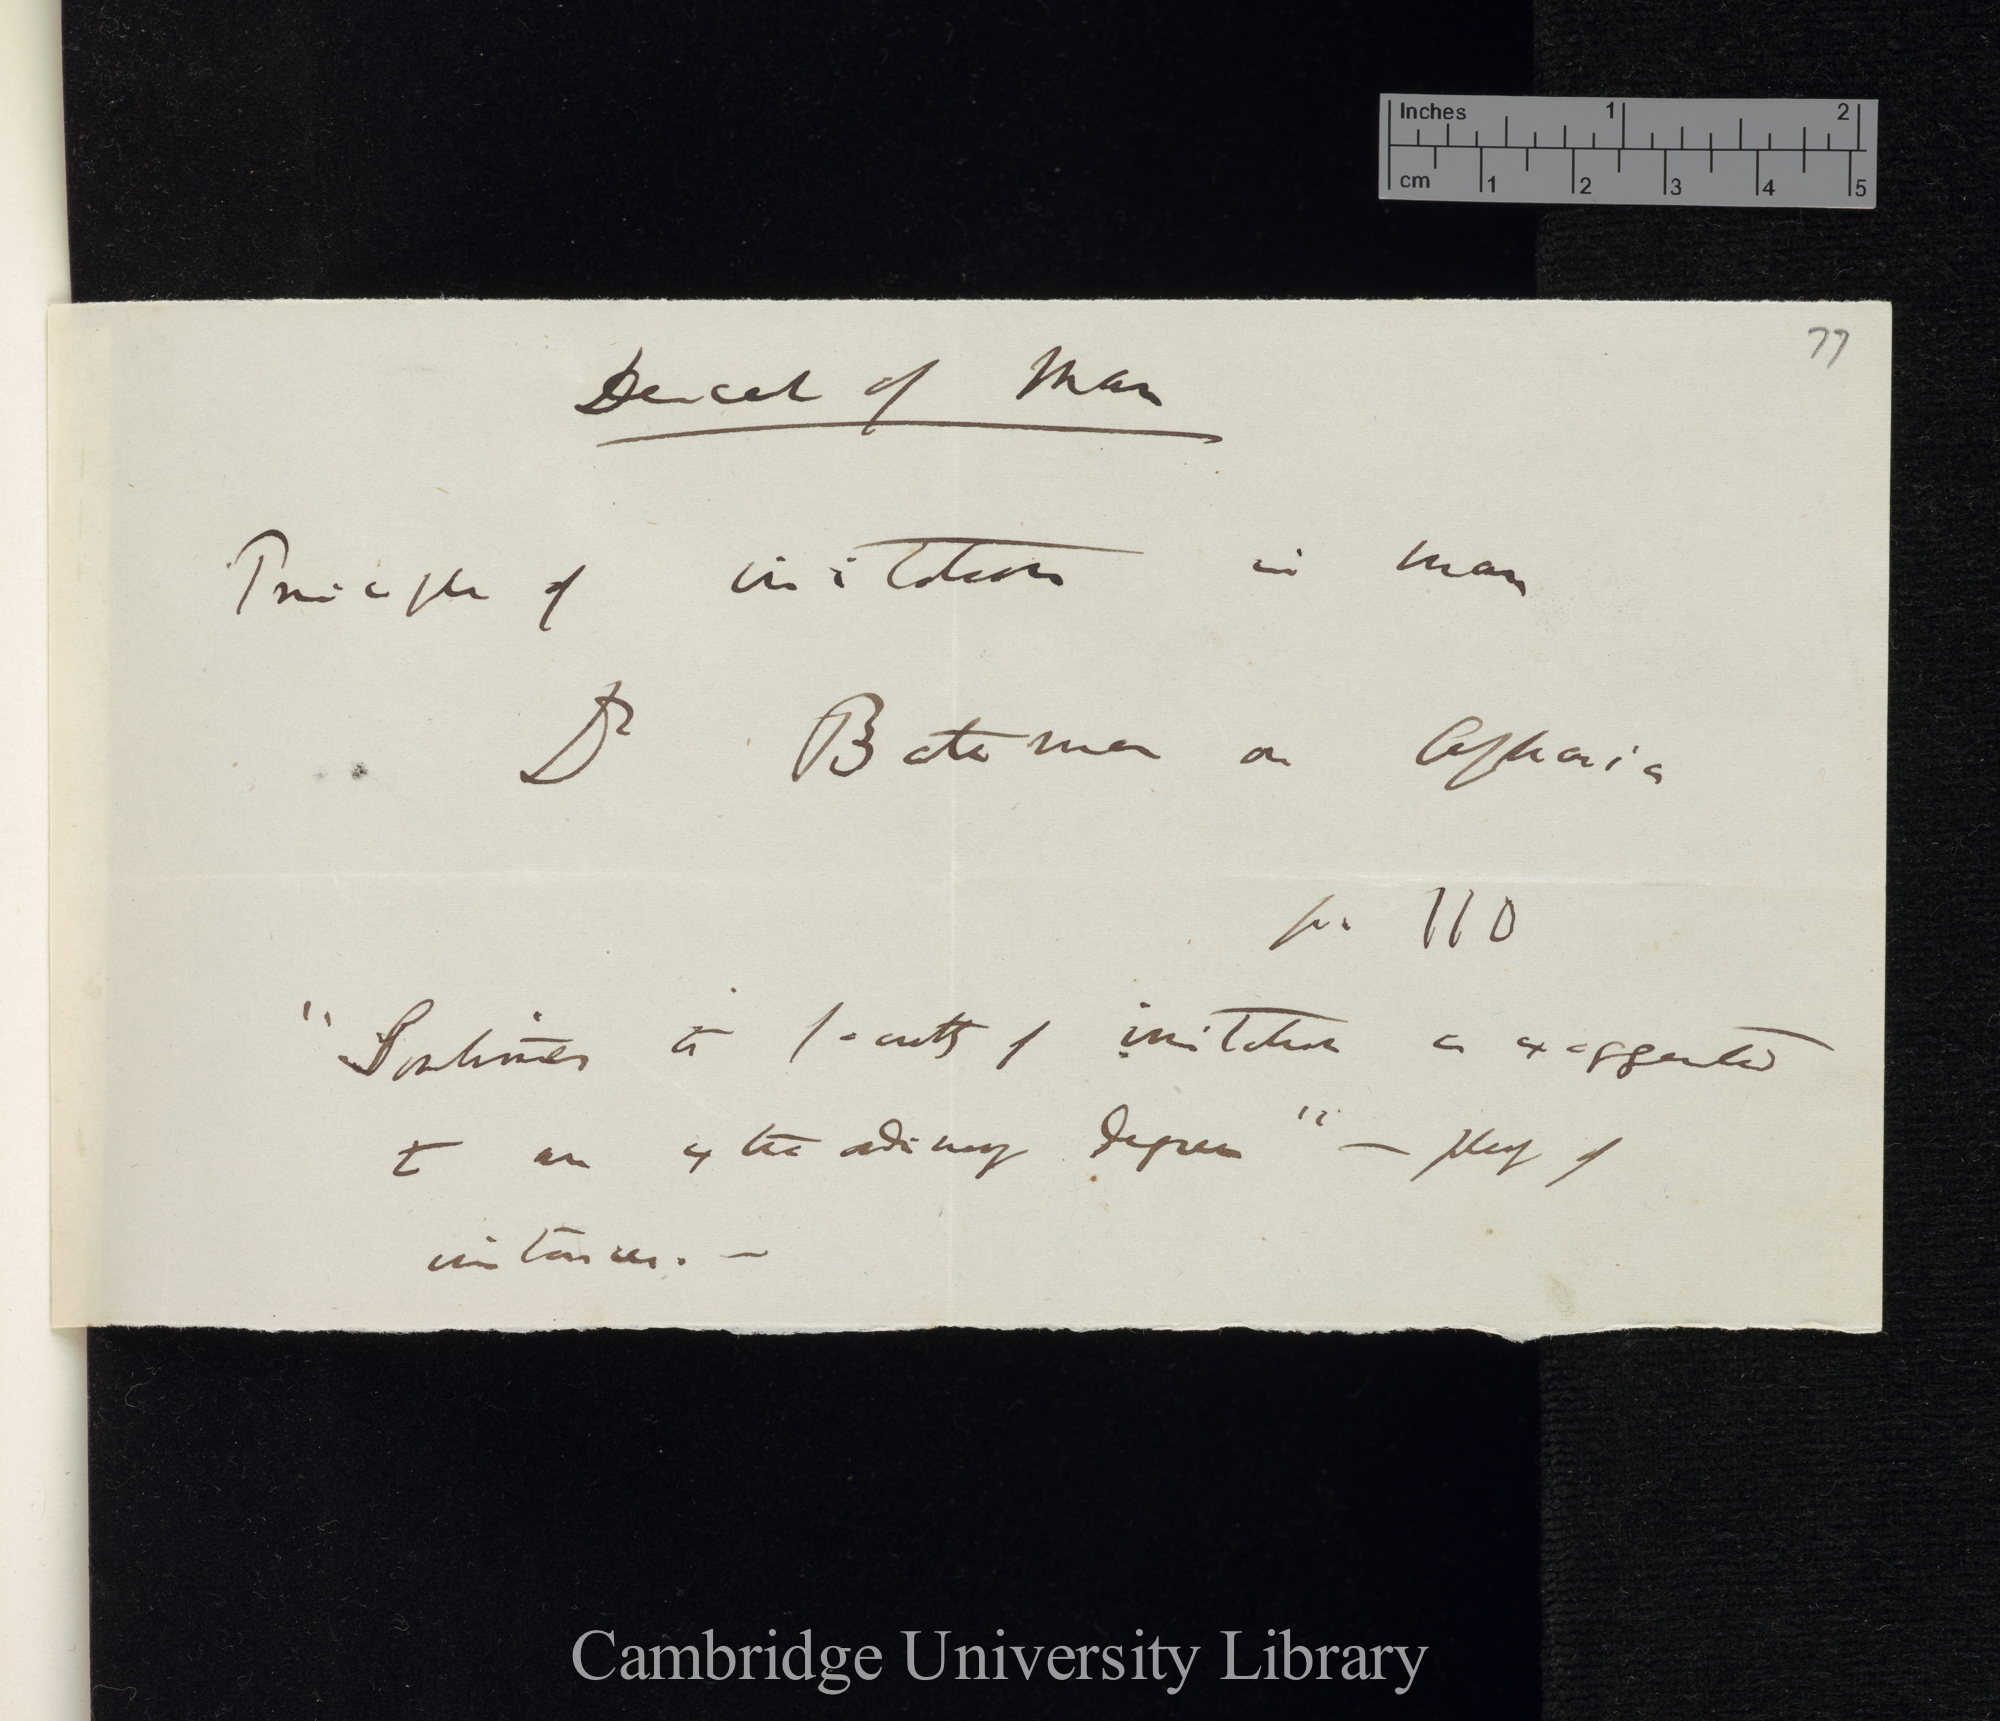 Inches 1 2
cm 1 2 3 4 5
77
Descent of Man
Principle of imitation in man
Dr Bateman on Aphasia
p. 110
"Sometimes the faculty of imitation is exaggerated
to an extraordinary degree" — plenty of
instances. —
Cambridge University Library